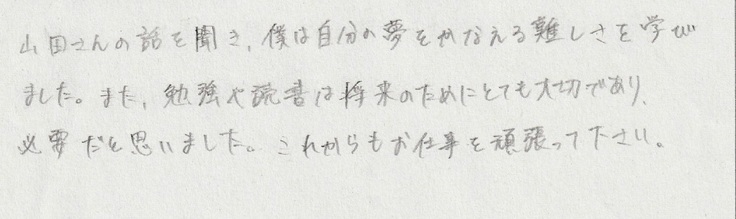 山田さんの話を聞き、僕は自分の夢をかなえる難しさを学び
ました。また、勉強や読書は将来のためにとても大切であり、
必要だと思いました。これからもお仕事を頑張って下さい。